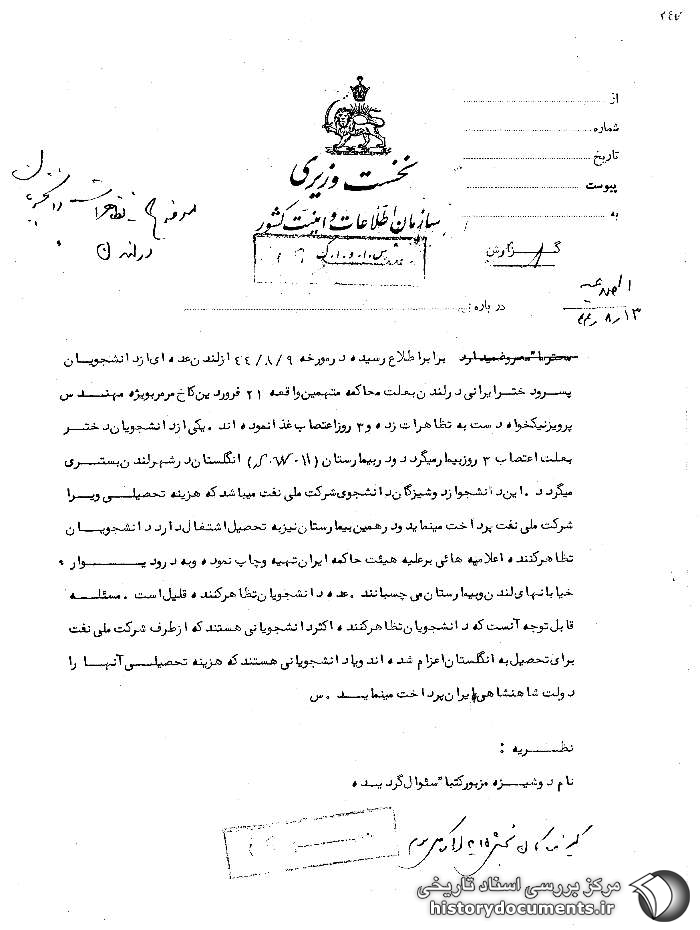 ۲۴۷
از
شماره
تاریخ
پیوست
به
نخست وزیری
سازمان اطلاعات و امنیت کشور
گزارش
موضوع - تظاهرات دانشجویان
در لندن
۴۴٫۸٫۱۳
درباره
محترما" معروض میدارد برابر اطلاع رسیده در مورخه ۴۴/۸/۹ از لندن عده ای از دانشجویان
پسر و دختر ایرانی در لندن بعلت محاکمه متهمین واقعه ۲۱ فروردین کاخ مرمر بویژه مهندس
پرویز نیکخواه دست به تظاهرات زده و ۳ روز اعتصاب غذا نموده اند . یکی از دانشجویان دختر
بعلت اعتصاب ۳ روز بیمار میگردد و در بیمارستان انگلستان در شهر لندن بستری
میگردد . این دانشجو از دوشیزگان دانشجوی شرکت ملی نفت میباشد که هزینه تحصیلی ویرا
شرکت ملی نفت پرداخت مینماید و در همین بیمارستان نیز به تحصیل اشتغال دارد دانشجویان
تظاهر کننده اعلامیه هائی بر علیه هیئت حاکمه ایران تهیه و چاپ نموده و به در و دیوار
خیابانهای لندن و بیمارستان می چسبانند . عده دانشجویان تظاهر کننده قلیل است . مسئله
قابل توجه آنست که دانشجویان تظاهر کننده اکثر دانشجویانی هستند که از طرف شرکت ملی نفت
برای تحصیل به انگلستان اعزام شده اند و یا دانشجویانی هستند که هزینه تحصیلی آنها را
دولت شاهنشاهی ایران پرداخت مینماید . س
نظریه :
نام دوشیزه مزبور کتبا" سئوال گردیده
مرکز بررسی اسناد تاریخی
historydocuments.ir